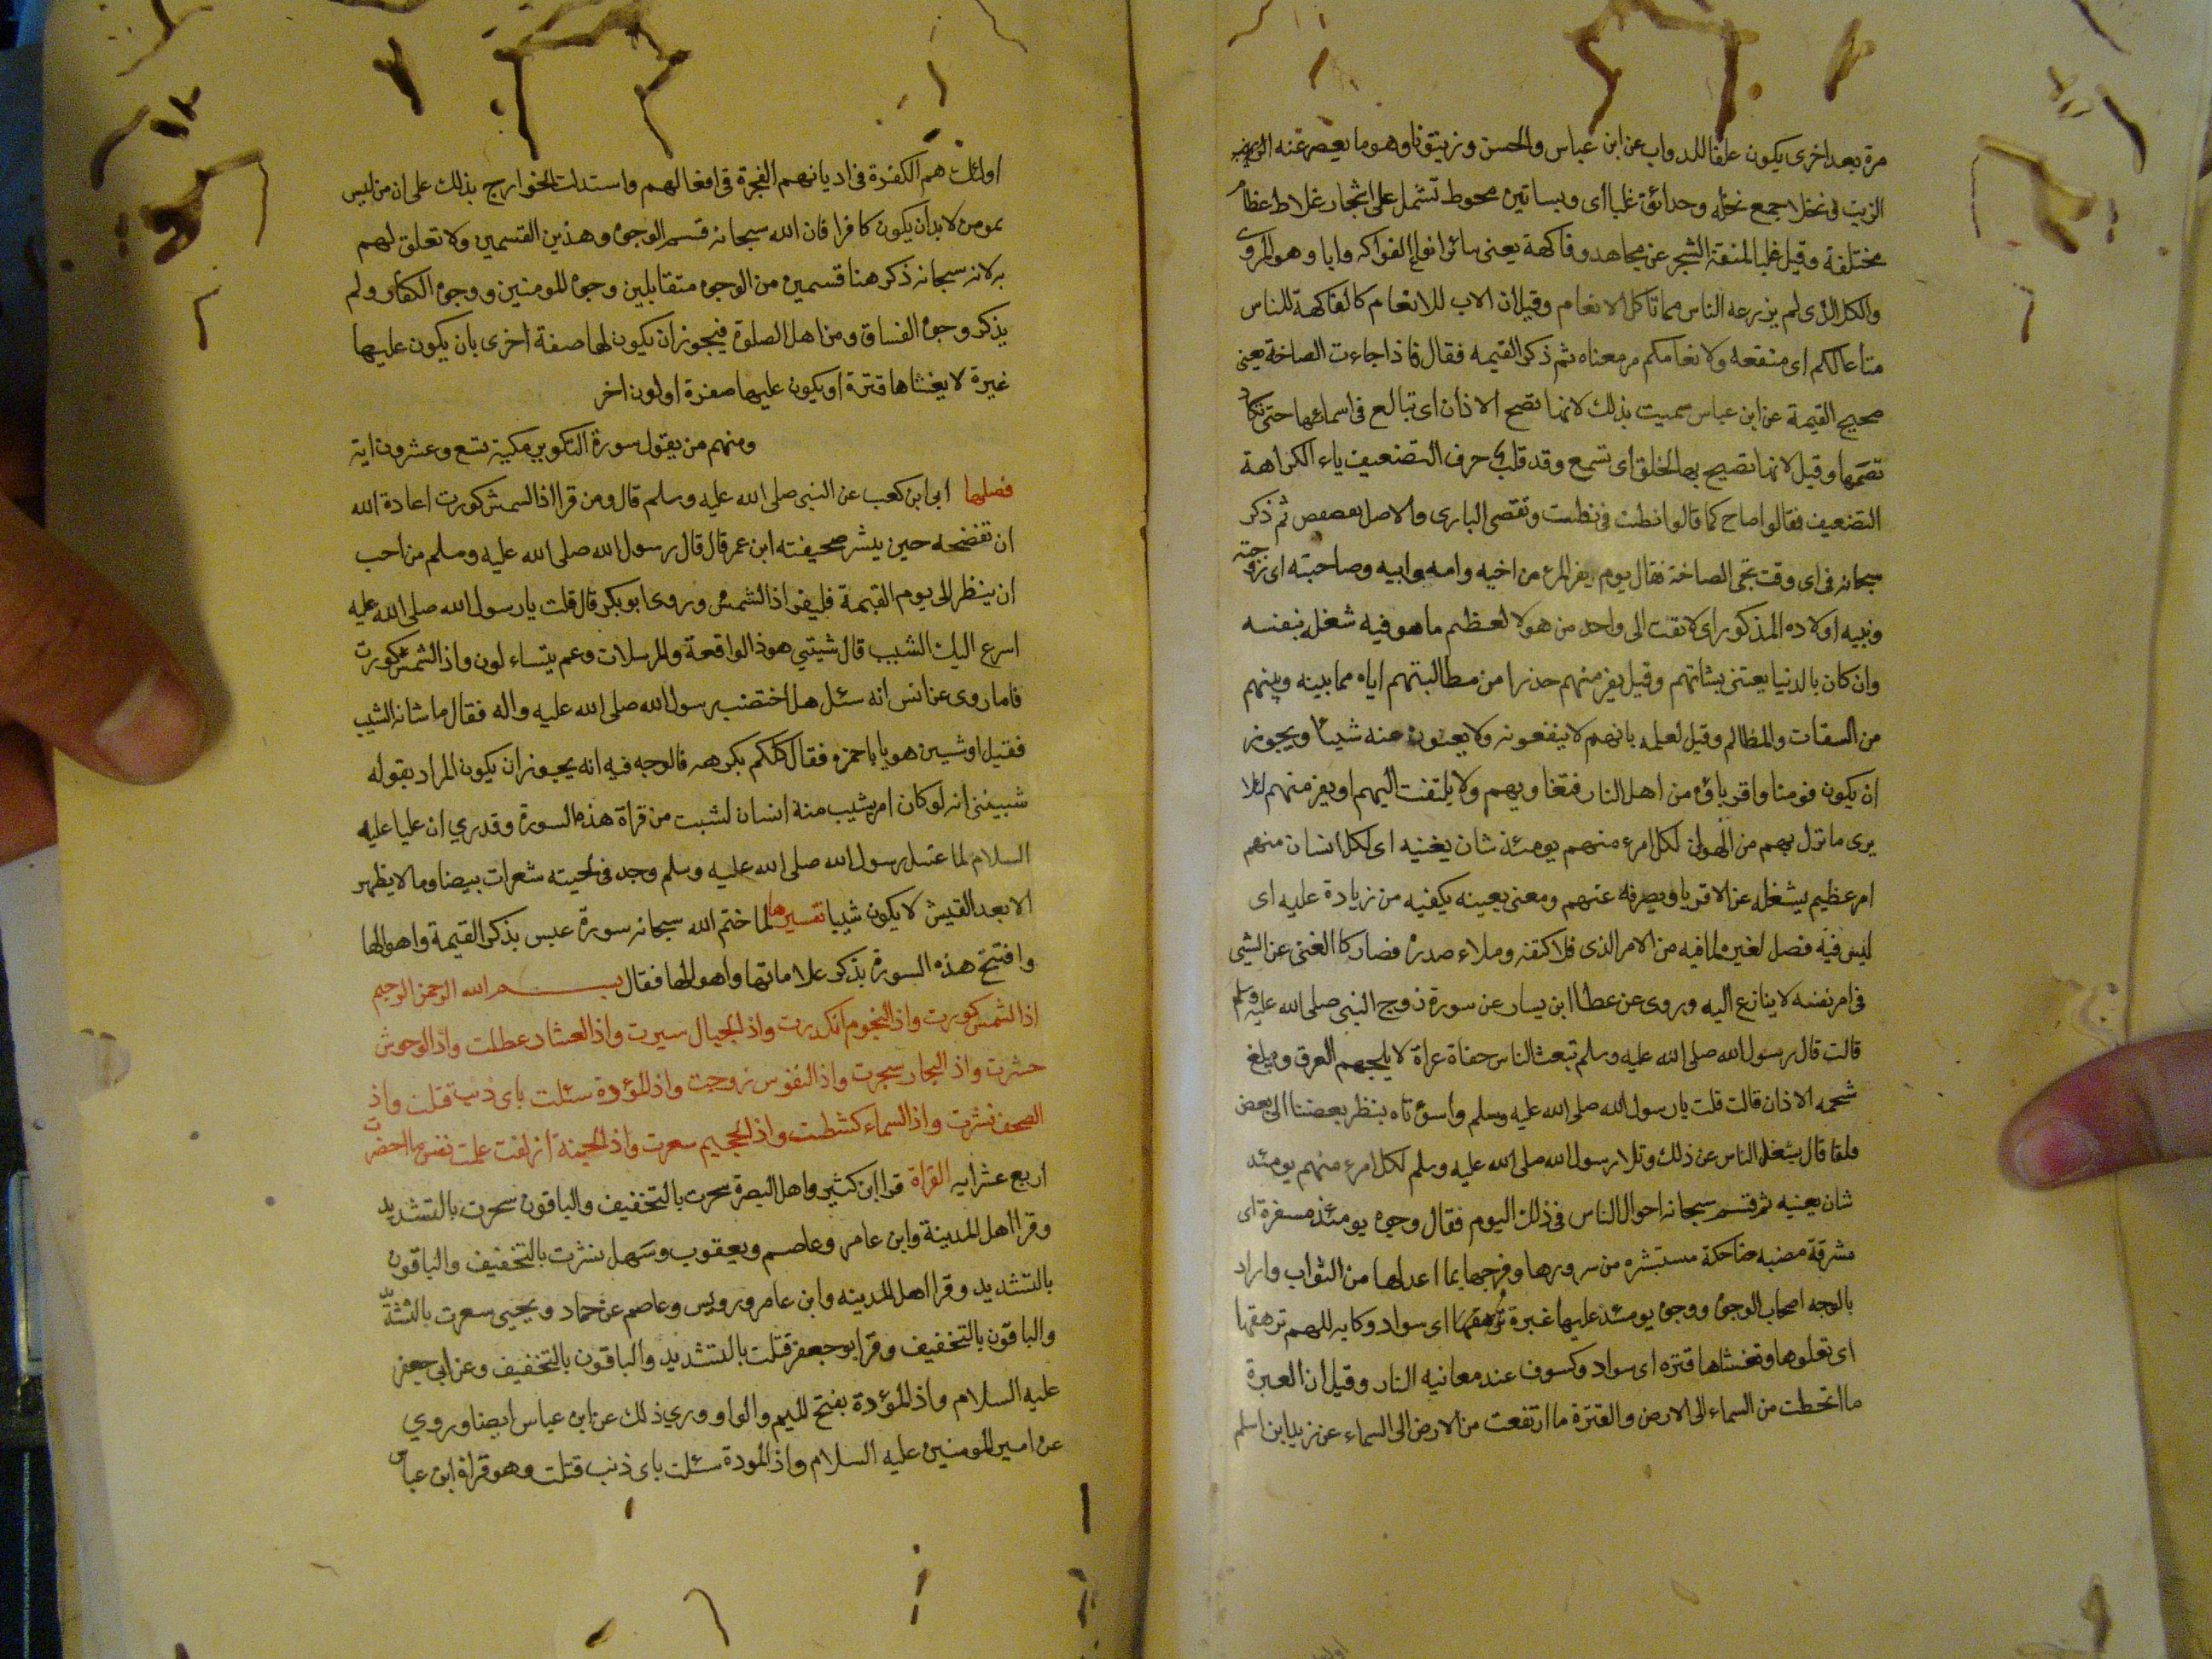 مرة بعد اخرى يكون علفا للدواب عن ابن عباس والحسن وزيتونا وهو ما يعصر عنه
الزيت ونخلا جمع نخله وحدائق غلبا اى وبساتين محوط تشمل على اشجار غلاط عظام
مختلفة وقيل غلبا الشجر عن مجاهد وفاكهة يعنى سائر انواع الفواكه وابا وهو المروى
والكل الذى لم يزرعه الناس مما تاكل الانعام وقيل ان الاب للانعام كالفاكهة للناس
متاعا لكم اى منفعه ولانعامكم مر معناه ثم ذكر القيمه فقال فاذا جاءت الصاخة يعنى
صحيح القيمة عن ابن عباس سميت بذلك لانها تصخ الاذان اى تبالع فى اسمائها حتى تكاد
تصمها وقيل لانها تصيح بها الخلق اى تسمع وقد قلب حرف التضعيف ياء الكراهة
التضعيف فقالوا صاح كما قالوا تظنت فى تظننت وتقضى البارى والاصل تقضض ثم ذكر
سبحانه فى اى وقت تجى الصاخة فقال يوم يفر المرء من اخيه وامه وابيه وصاحبته اى زوجته
وبنيه اولاده المذكور اى لا تفت الى واحد من هولا لعظم ما هو فيه شغله بنفسه
وان كان بالدنيا يعتنى بشانهم وقيل يفر منهم حذرا من مطالبتهم اياه مما بينه وبينهم
من السقات والمظالم وقيل لعلمه بانهم لا ينفعونه ولا يعنون عنه شيئا ويجوز
ان يكون مومنا واقرباؤه من اهل النار ولا يلتفت اليهم او يفر منهم لئلا
يرى ما نزل بهم من الهوان لكل امرء منهم يومئذ شان يغنيه اى لكل انسان منهم
امر عظيم يشغله عن الاقربا ويصرفه عنهم ومعنى يعينه يكفيه من زيادة عليه اى
ليس فيه فصل لغيره لما فيه من الامر الذى قد اكتنفه وملاء صدره فصار كا الغنى عن الشيى
فى امر نفسه لا ينازع اليه وروى عن عطا ابن يسار عن سورة زوج النبى صلى الله عليه وسلم
قالت قال رسول الله صلى الله عليه وسلم تبعث الناس حفاة عراة لا يلجمهم العرق وميلغ
شحمه الاذان قالت قلت يا رسول الله صلى الله عليه وسلم واسؤ تاه ينظر بعضنا الى بعض
قال يشغل الناس عن ذلك وتلا رسول الله صلى الله عليه وسلم لكل امرء منهم يومئذ
شان يعنيه ثم قسم سبحانه احوال الناس فى ذلك اليوم فقال وجوه يومئذ مسفرة اى
مشرقة مضيه ضاحكة مستبشره من سرورها وفرجها بما اعد لها من الثواب واراد
بالوجه اصحاب الوجوه ووجوه يومئذ عليها غبرة ترهقها اى سواد وكابه للهم ترهقها
اى تعلوها وتغشاها قتره اى سواد وكسوف عند معانيه النار وقيل ان العبرة
ما انحطت من السماء الى الارض والقترة ما ارتفعت من الارض الى السماء عن زيد ابن اسلم
اولئك هم الكفرة فى اديانهم الفجرة فى افعالهم واستدلت الخوارج بذلك على ان من ليس
بمومن لا بد ان يكون كافرا فان الله سبحانه قسم الوجوه وهذين القسمين ولا تعلق لهم
به لانه سبحانه ذكر هنا قسمين من الوجوه متقابلين وجوه للمومنين ووجوه الكفار ولم
يذكر وجوه الفساق ومن اهل الصلوة فيجوز ان يكون لها صفة اخرى بان يكون عليها
غبرة لا يغشاها قترة او يكون عليها صفرة او لون اخر
ومنهم من يقول سورة التكوير مكية تسع وعشرون اية
فضلها ابى ابن كعب عن النبى صلى الله عليه وسلم قال ومن قرا اذا الشمس كورت اعاده الله
ان تفضحه حين ينشر صحيفته ابن عمر قال قال رسول الله صلى الله عليه وسلم من احب
ان ينظر الى يوم القيمة فليقرا اذا الشمس وروى ابو بكر قال قلت يا رسول الله صلى الله عليه
اسرع اليك الشيب قال شيبتني هوذ الواقعة والمرسلات وعم يتساء لون واذا الشمس كورت
فاما روى عن انس انه سئل هل اختضب رسول الله صلى الله عليه واله فقال ما شانه الشيب
فقيل اوشين هو يا با حمزه فقال كلكم يكرهه فالوجه فيه انه يجوز ان يكون المراد بقوله
شيبتنى انه لو كان امر يشيب منه انسان لشبت من قراة هذه السورة وقد روي ان عليا عليه
السلام لما غسل رسول الله صلى الله عليه وسلم وجد فى لحيته شعرات بيضا وما لا يظهر
الا بعد التفتيش لا يكون شيبا تفسيرها لما ختم الله سبحانه سورة عبس بذكر القيمة واهوالها
وافتتح هذه السورة بذكر علاماتها واهوالها فقال بسم الله الرحمن الرحيم
اذا الشمس كورت واذا النجوم انكدرت واذ الجبال سيرت واذا العشار عطلت واذا الوحوش
حشرت واذ البحار سجرت واذا النفوس زوجت واذ الموؤدة سئلت باى ذنب قتلت واذ
الصحف نشرت واذ السماء كشطت واذ الجحيم سعرت واذ الجنة ازلفت علمت نفس ما احضرت
اربع عشر ايه القراة قرا ابن كثير واهل البصرة سجرت بالتخفيف والباقون سجرت بالتشديد
وقرا اهل المدينة وابن عامر وعاصم ويعقوب وسهل نشرت بالتخفيف والباقون
بالتشديد وقرا اهل المدينه وابن عامر ورويس وعاصم عن حماد ويحيى سعرت بالتشديد
والباقون بالتخفيف وقرا ابو جعفر قتلت بالتشديد والباقون بالتخفيف وعن ابي جعفر
عليه السلام واذ الموؤدة بفتح الميم والواو وروي ذلك عن ابن عباس ايضا وروي
عن امير المومنين عليه السلام واذ المودة سئلت باى ذنب قتلت وهو قراة ابن عباس